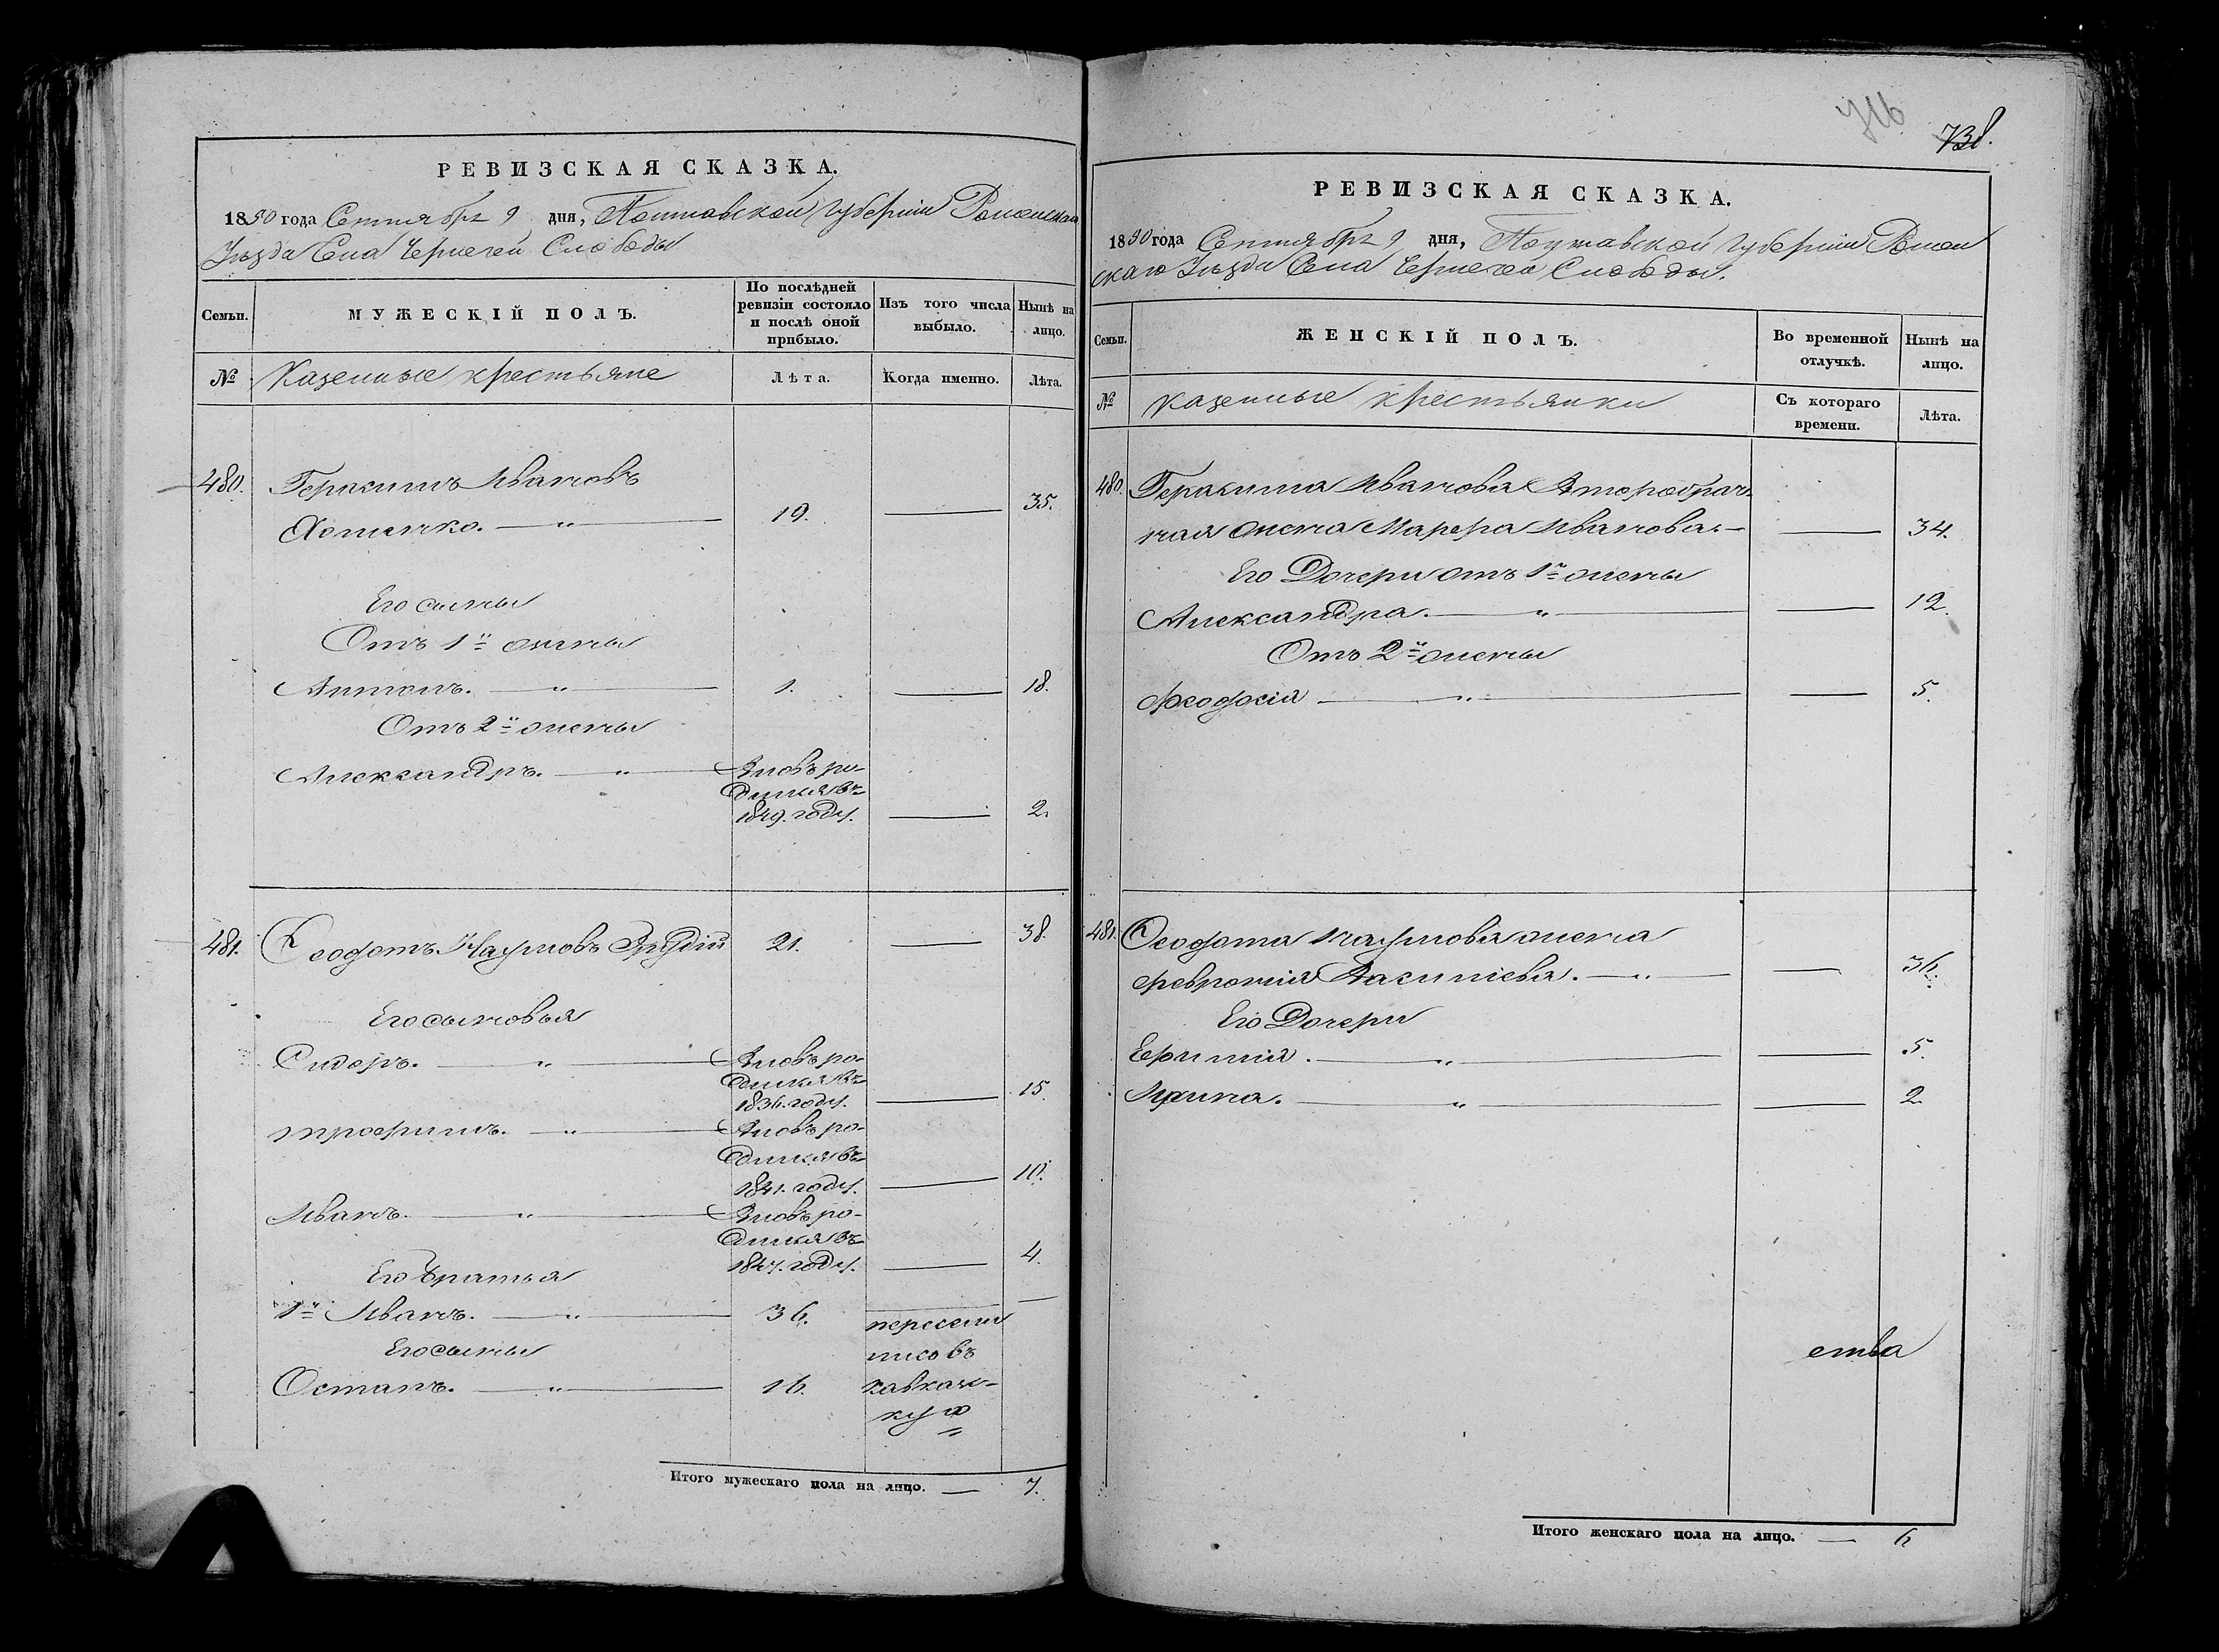 РЕВИЗСКАЯ СКАЗКА.
1850 года Сентября 9 дня, Полтавской Губернии Роменскаго
Уѣзда Села Чернечей Слободы
Семьи.
МУЖЕСКІЙ ПОЛЪ.
По послѣдней ревизіи состояло и послѣ оной прибыло.
Изъ того числа выбыло.
Нынѣ на лицо.
№
Казенные крестьяне
Лѣта.
Когда именно.
Лѣта.
480. Герасимъ Ивановъ
Хоменко. — " — 19. — 35.
Его сыны
Отъ 1й жены
Антонъ. — " — 1. — 18.
Отъ 2й жены
Александръ. — " — Вновь ро-
дился въ
1849. году. — 2.
481. Ѳеодотъ Наумовъ 21. — 38.
Его сыновья
Сидоръ. — " — Вновь ро-
дился въ
1836. году. — 15.
Трофимъ. — " — Вновь ро-
дился въ
1841. году. — 10.
Иванъ. — " — Вновь ро-
дился въ
1847. году. — 4.
Его братья
1й Иванъ. — " — 36. переселил
Его сыны
Остапъ. — " — 16. кавказс-
кую
Итого мужескаго пола на лицо. — 7.
716
738.
РЕВИЗСКАЯ СКАЗКА.
1850 года Сентября 9 дня, Полтавской Губерніи Ромен
скаго Уѣзда Села Чернечей Слободы.
Семьи.
ЖЕНСКІЙ ПОЛЪ.
Во временной отлучкѣ.
Нынѣ на лицо.
№
казенные крестьянки
Съ котораго времени.
Лѣта.
480. Герасима Иванова Второбрач-
ная жена Марфа Иванова. — — 34.
Его Дочери отъ 1й жены
Александра. — " — — 12.
Отъ 2й жены
Феодосія — " — — 5.
481. Ѳеодота Наумова жена
Феврония Василіева. — " — — 36.
Его Дочери
Ефимия. — " — — 5.
Ирина. — " — — 2.
ства
Итого женскаго пола на лицо. — 6